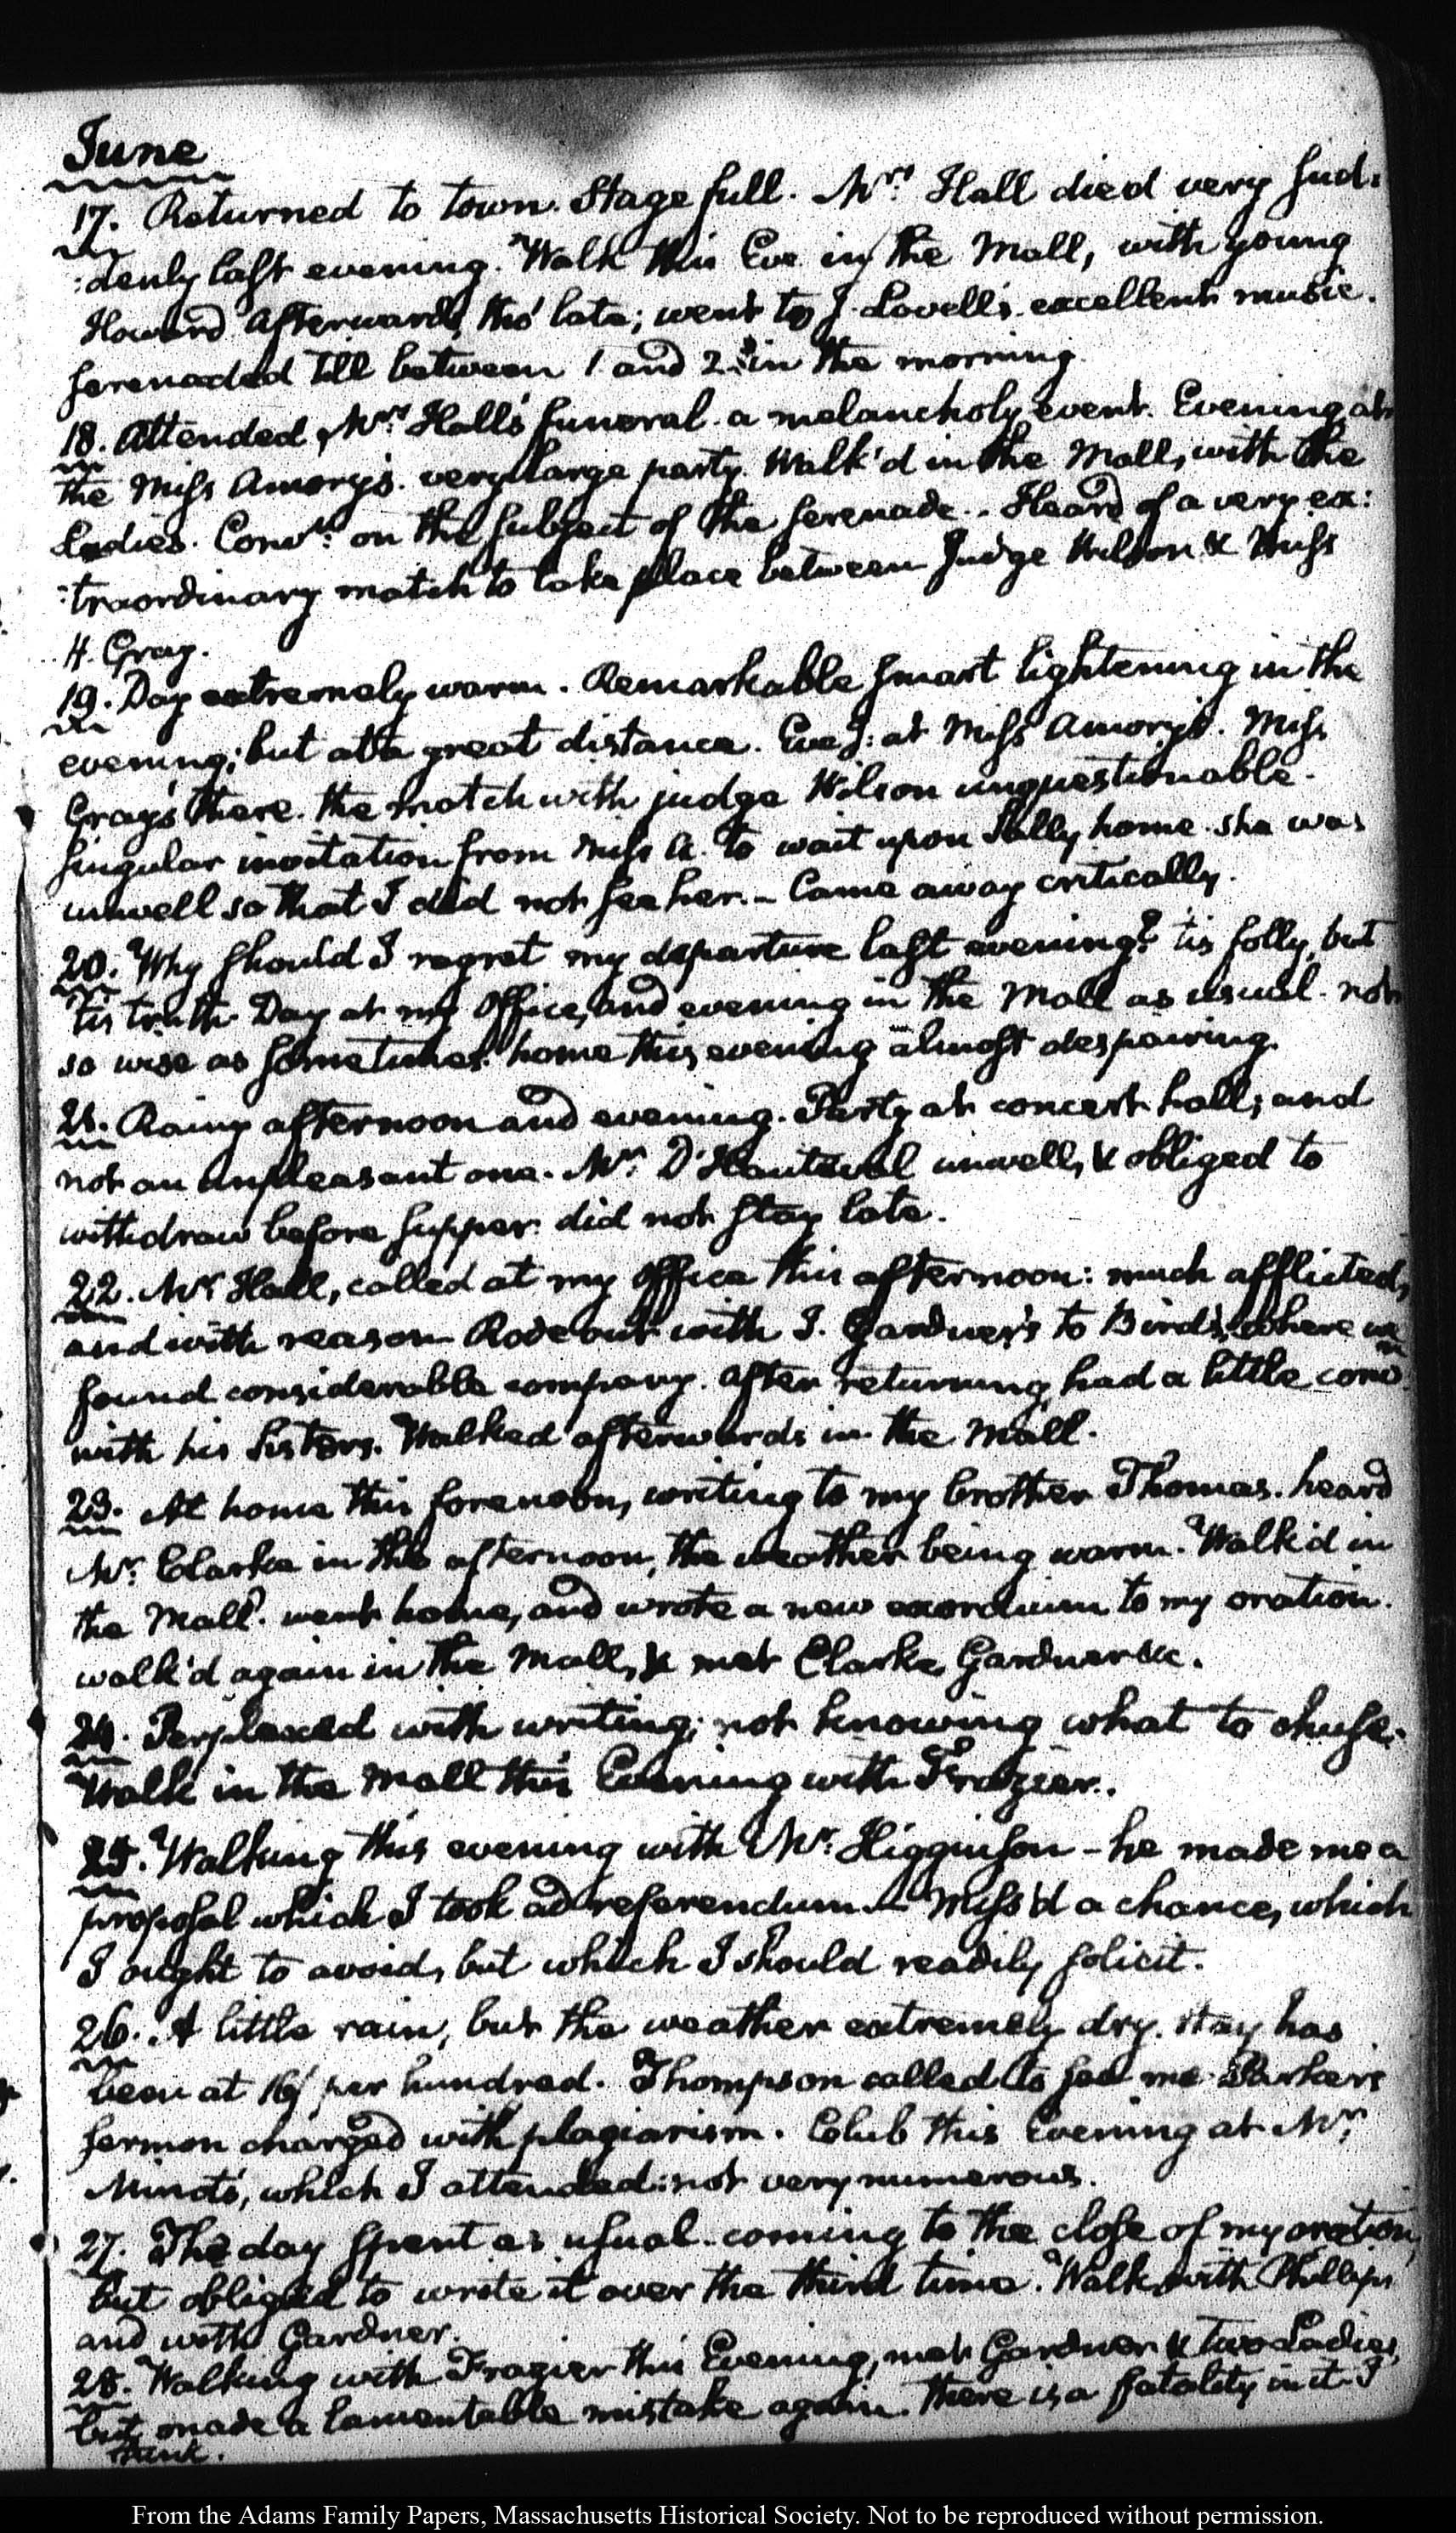 June
17. Returned to town. Stage full. Mrs. Hall died very sud:
:denly last evening. Walk this Eve in the Mall, with young
Howard. Afterwards, tho' late; went to J. Lovell's. excellent music.
serenaded till between 1 and 2 in the morning.
18. Attended Mrs. Hall's funeral. a melancholy event. Evening at
the Miss Amory's. very large party. Walk'd in the Mall, with the
Ladies. Convn. on the subject of the serenade.. Heard of a very ex:
:traordinary match to take place between Judge Wilson & Miss
H. Gray.
19. Day extremely warm. Remarkable smart lightening in the
evening; but at a great distance. Eveg: at Miss Amory's. Miss
Gray's there. the match with judge Wilson unquestionable.
singular invitation from Miss A. to wait upon Sally home. she was
unwell so that I did not see her. – Came away critically.
20. Why should I regret my departure last evening? 'tis folly, but
'tis truth. Day at my Office, and evening in the Mall as usual. not
so wise as sometimes. home this evening almost despairing.
21. Rainy afternoon and evening. Party at concert hall; and
not an unpleasant one. Mr. D'Hauteval unwell, & obliged to
withdraw before supper. did not stay late.
22. Mr. Hall, called at my Office this afternoon: much afflicted,
and with reason. Rode out with J. Gardner's to Bird's, where we
found considerable company. After returning, had a little convn.
with his Sisters. Walked afterwards in the Mall.
23. At home this forenoon, writing to my brother Thomas. heard
Mr. Clarke in the afternoon, the weather being warm. Walk'd in
the Mall. went home, and wrote a new exordium to my oration.
walk'd again in the Mall, & met Clarke, Gardner &c.
24. Perplexed with writing; not knowing what to chuse.
Walk in the Mall this Evening with Frazier..
25. Walking this evening with Mr. Higginson – he made me a
proposal which I took ad referendum. – Miss'd a chance, which
I ought to avoid, but which I should readily solicit.
26. A little rain, but the weather extremely dry. Hay has
been at 16/ per hundred. Thompson called to see me. Parker's
sermon charged with plagiarism. Club this Evening at Mr.
Minot's, which I attended: not very numerous.
27. The day spent as usual. coming to the close of my oration,
but obliged to write it over the third time. Walk with Phillips
and with Gardner.
28. Walking with Frazier this Evening, met Gardner & two Ladies,
but made a lamentable mistake again. there is a fatality in it I
think.
From the Adams Family Papers, Massachusetts Historical Society. Not to be reproduced without permission.